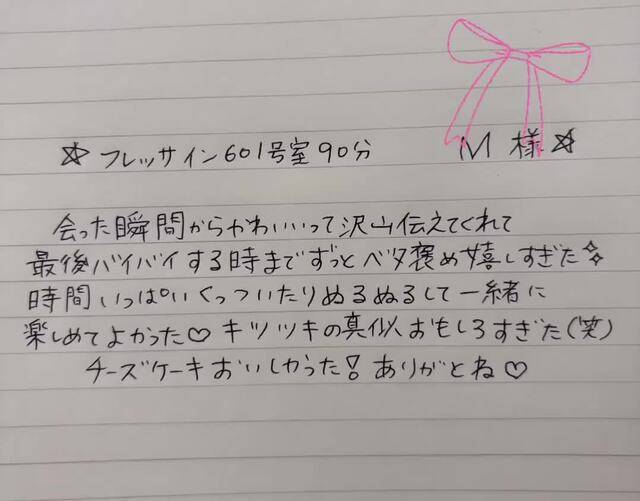 ☆フレッサイン601号室90分 M様☆
会った瞬間からかわいいって沢山伝えてくれて
最後バイバイする時までずっとベタ褒め嬉しすぎた✧
時間いっぱいくっついたりぬるぬるして一緒に
楽しめてよかった♡ キツツキの真似おもしろすぎた(笑)
チーズケーキおいしかった!ありがとね♡